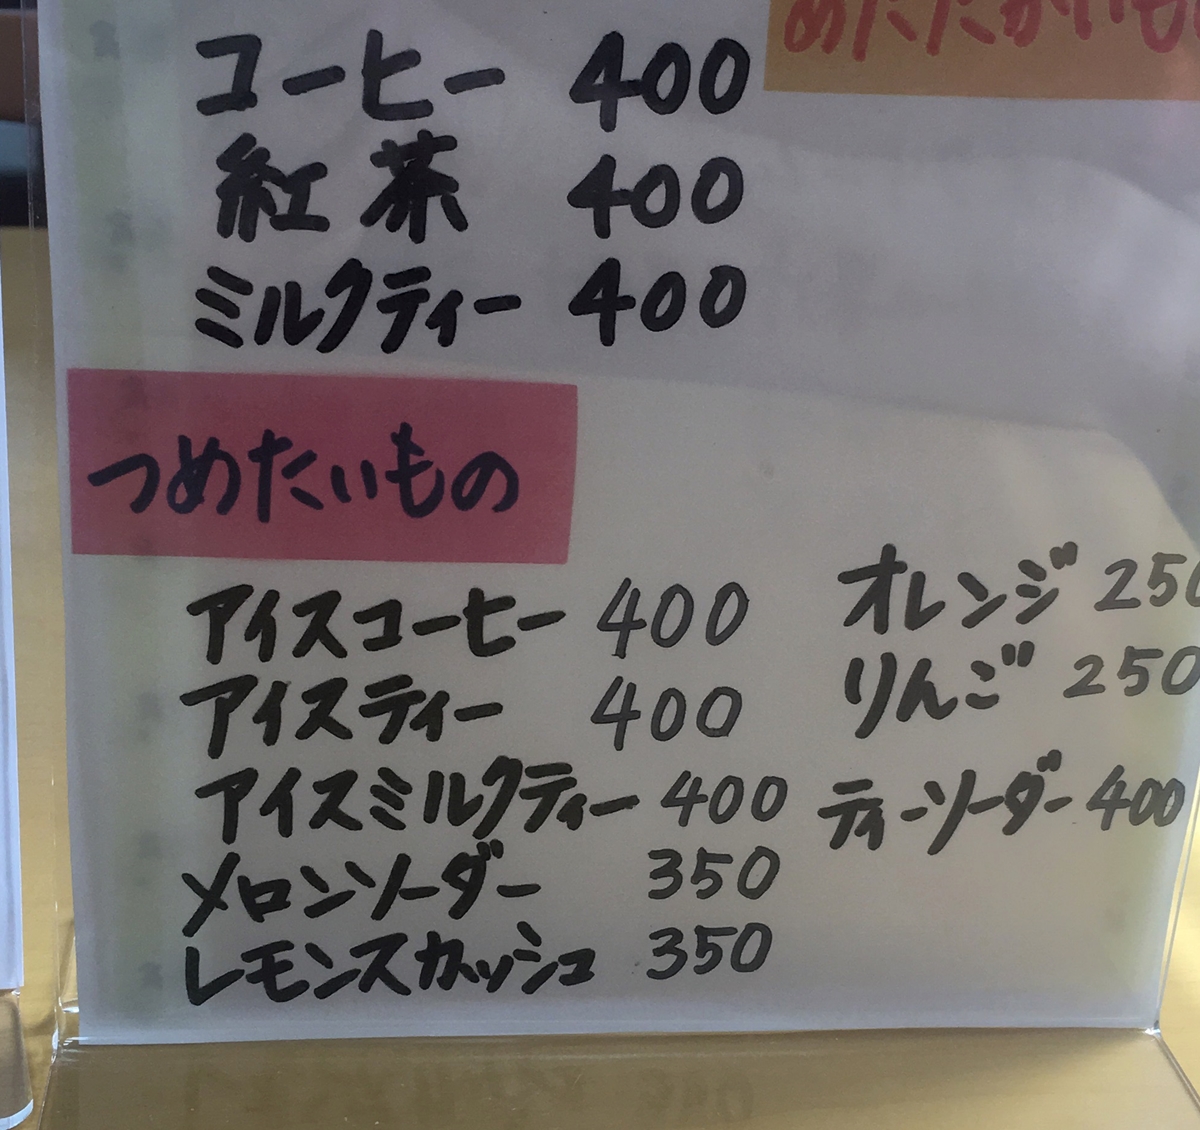 あたたかいも
コーヒー 400
紅茶 400
ミルクティー 400
つめたいもの
アイスコーヒー 400
アイスティー 400
アイスミルクティー 400
メロンソーダー 350
レモンスカッシュ 350
オレンジ 250
りんご 250
ティーソーダー 400